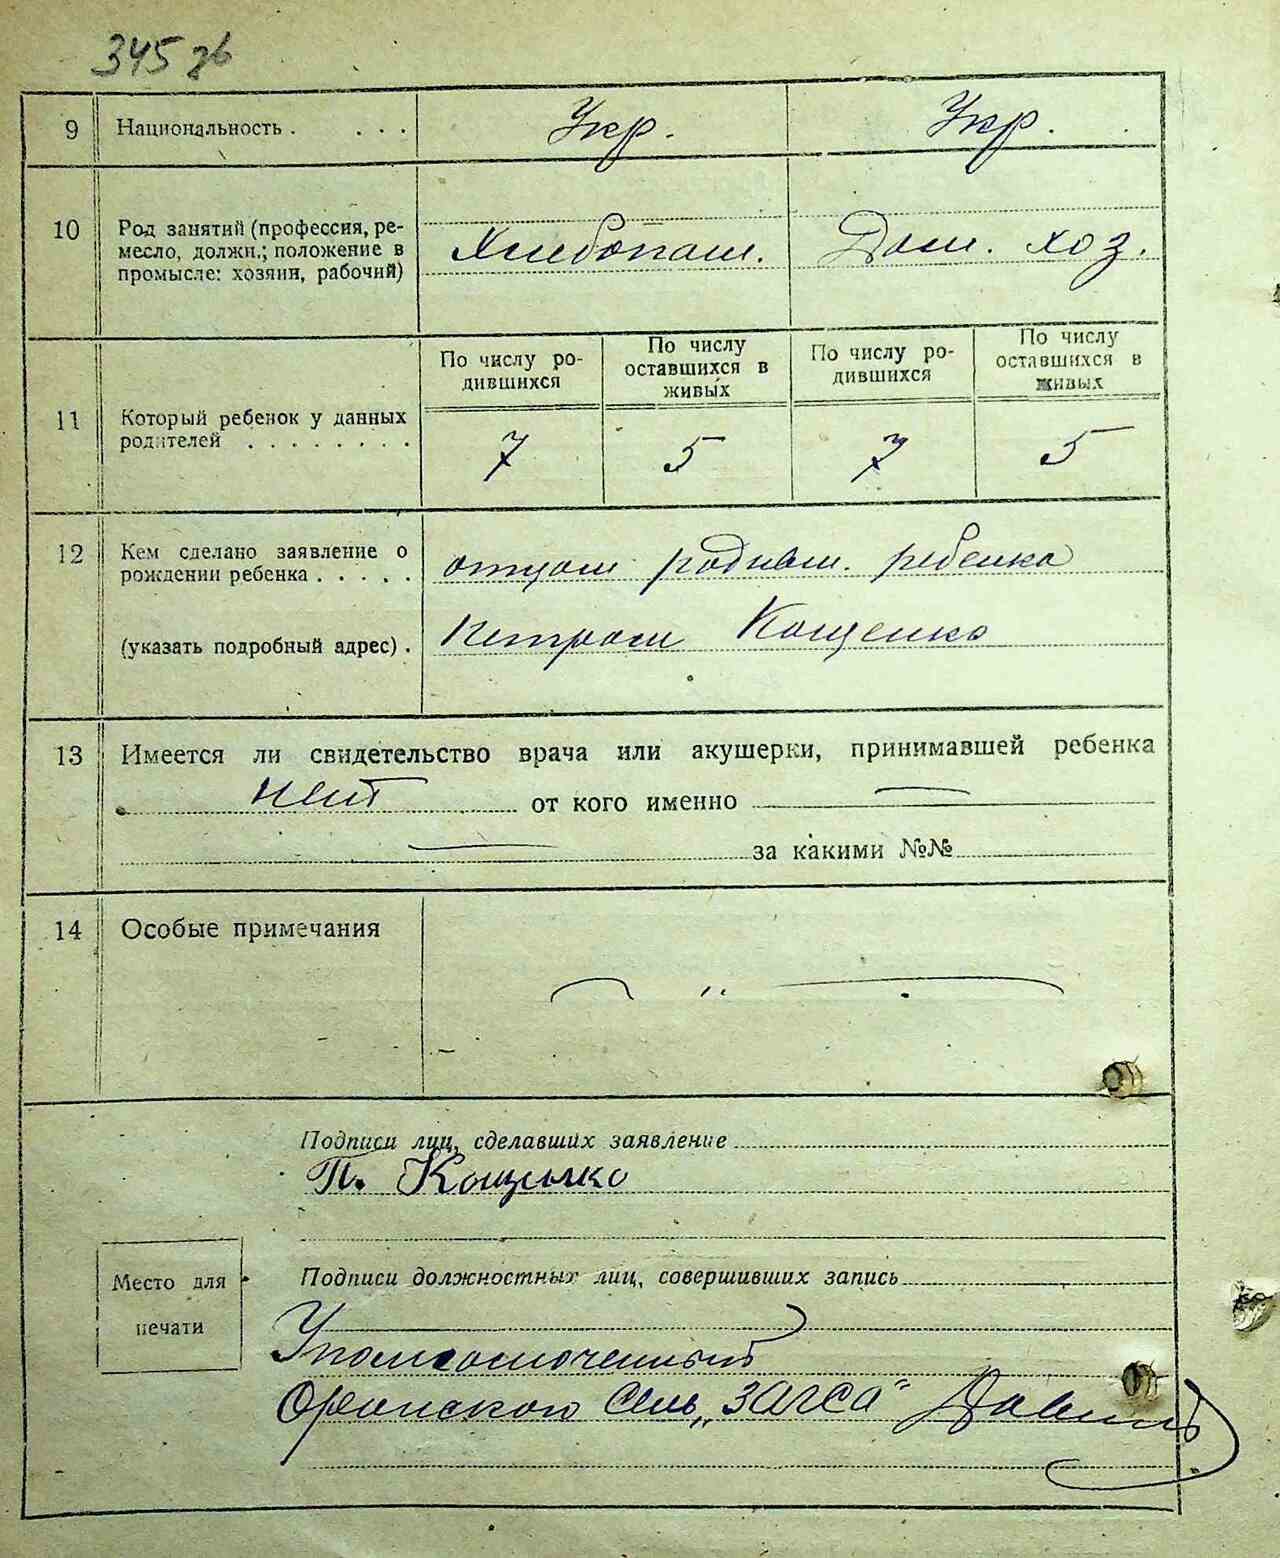 345 зв
9 Национальность . . . . Укр. Укр.
10 Род занятий (профессия, ре-
месло, должн.; положение в
промысле: хозяин, рабочий)
Хлебопаш. Дом. хоз.
По числу ро-
дившихся
По числу
оставшихся в
живых
По числу ро-
дившихся
По числу
оставшихся в
живых
11 Который ребенок у данных
родителей . . . . . . . .
7 5 7 5
12 Кем сделано заявление о
рождении ребенка . . . . .
отцом родным. ребенка
(указать подробный адрес) .
Петром Кощенко
13 Имеется ли свидетельство врача или акушерки, принимавшей ребенка
нет от кого именно —
— за какими №№
14 Особые примечания
— " —
Подписи лиц, сделавших заявление
П. Кощенко
Место для
печати
Подписи должностных лиц, совершивших запись
Уполномоченный
Сель „ЗАГСА"